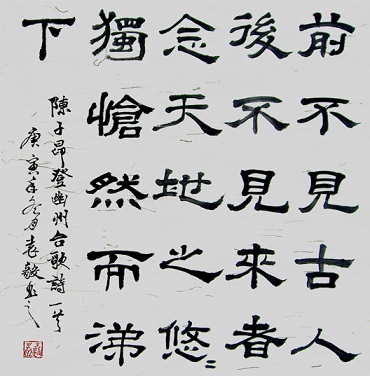 前不見古人
後不見來者
念天地之悠〻
獨愴然而涕
下
陳子昂登幽州台歌詩一首
庚寅年冬月袁敏書之